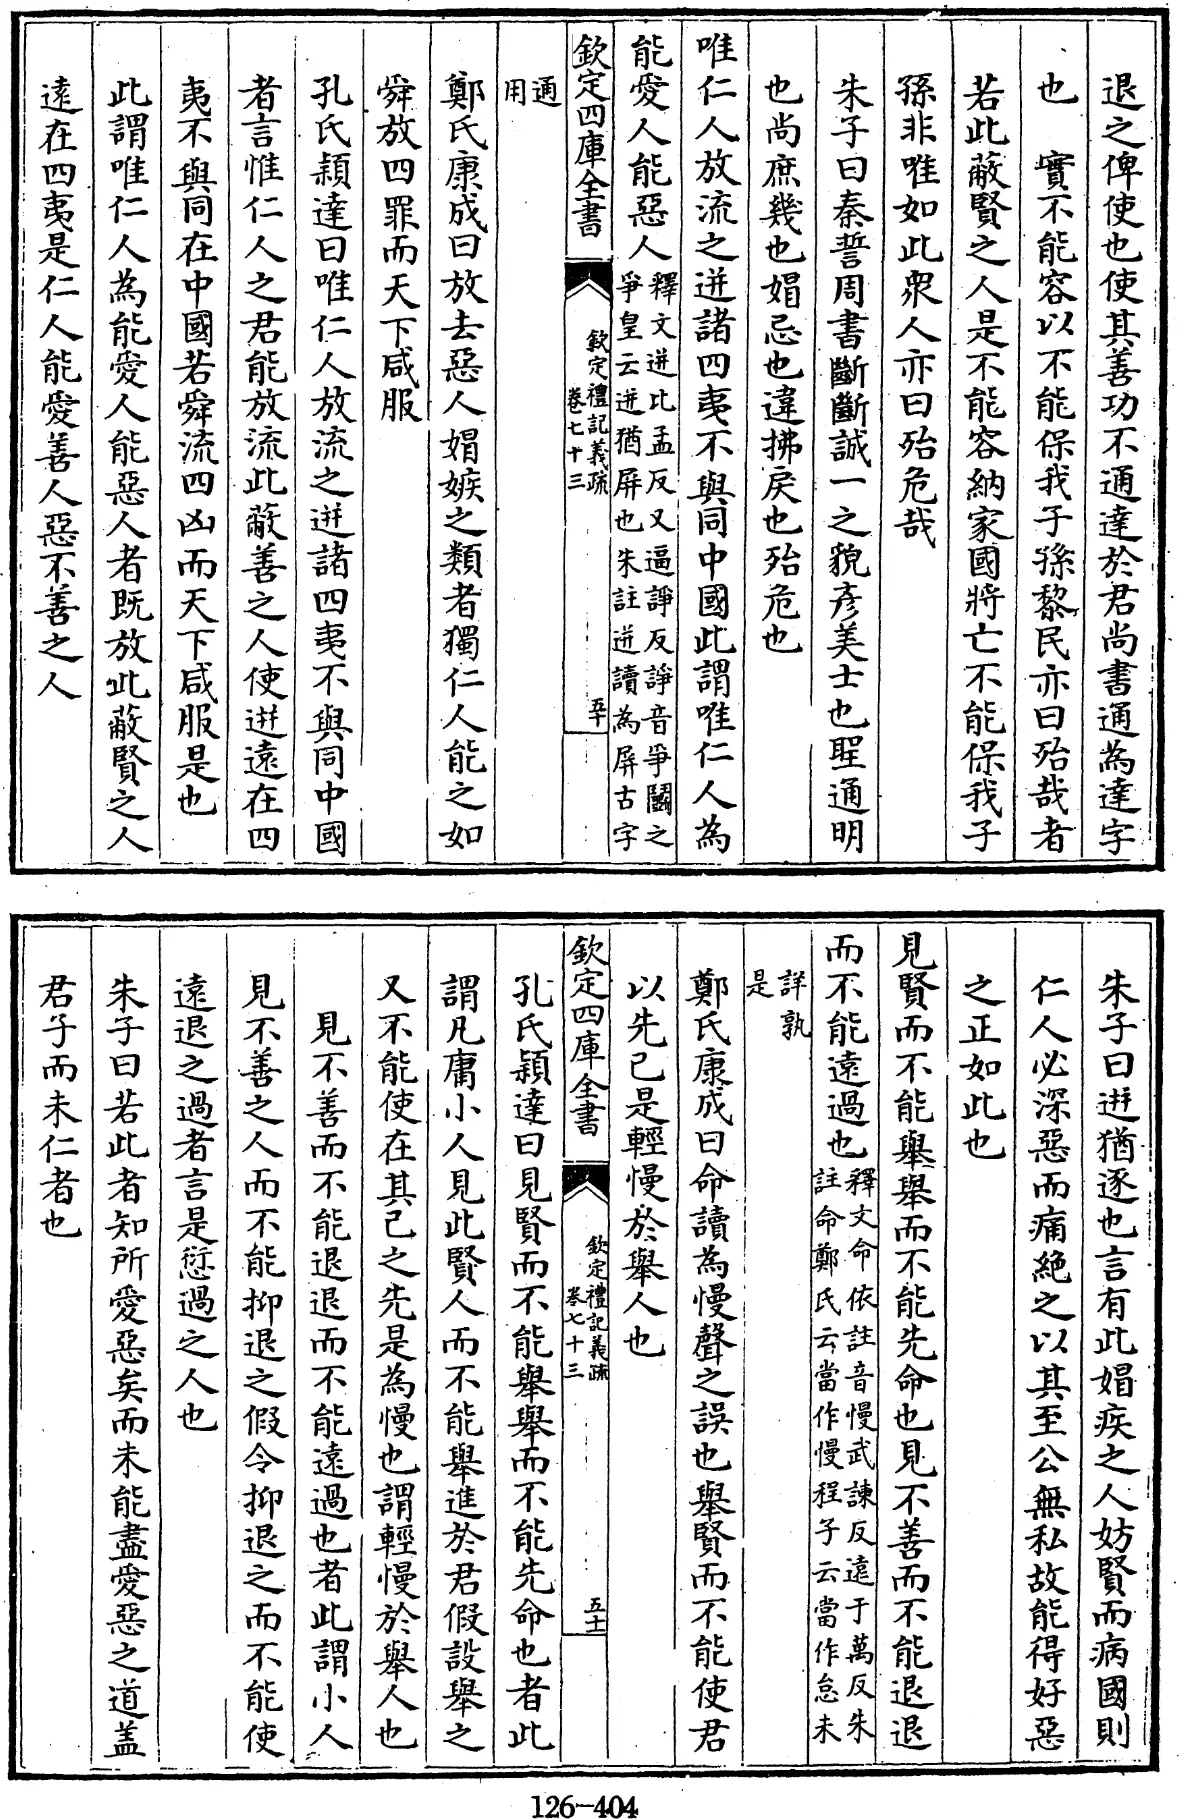 退之俾使也使其善功不通達於君尚書通為達字
也　實不能容以不能保我子孫黎民亦曰殆哉者
若此蔽賢之人是不能容納家國將亡不能保我子
孫非唯如此衆人亦曰殆危哉
朱子曰秦誓周書斷斷誠一之貌彦美士也聖通明
也尚庶幾也媢忌也違拂戾也殆危也
唯仁人放流之迸諸四夷不與同中國此謂唯仁人為
能愛人能惡人釋文迸比孟反又逼諍反諍音爭鬭之爭皇云迸猶屏也朱註迸讀為屏古字
欽定四庫全書
欽定禮記義疏
卷七十三
五十
通用
鄭氏康成曰放去惡人媢嫉之類者獨仁人能之如
舜放四罪而天下咸服
孔氏穎達曰唯仁人放流之迸諸四夷不與同中國
者言惟仁人之君能放流此蔽善之人使迸遠在四
夷不與同在中國若舜流四凶而天下咸服是也
此謂唯仁人為能愛人能惡人者既放此蔽賢之人
遠在四夷是仁人能愛善人惡不善之人
朱子曰迸猶逐也言有此媢疾之人妨賢而病國則
仁人必深惡而痛絶之以其至公無私故能得好惡
之正如此也
見賢而不能舉舉而不能先命也見不善而不能退退
而不能遠過也釋文命依註音慢武諫反遠于萬反朱註命鄭氏云當作慢程子云當作怠未
詳孰是
鄭氏康成曰命讀為慢聲之誤也舉賢而不能使君
以先己是輕慢於舉人也
欽定四庫全書
欽定禮記義疏
卷七十三
五十一
孔氏穎達曰見賢而不能舉舉而不能先命也者此
謂凡庸小人見此賢人而不能舉進於君假設舉之
又不能使在其己之先是為慢也謂輕慢於舉人也
見不善而不能退退而不能遠過也者此謂小人
見不善之人而不能抑退之假令抑退之而不能使
遠退之過者言是愆過之人也
朱子曰若此者知所愛惡矣而未能盡愛惡之道蓋
君子而未仁者也
126-404